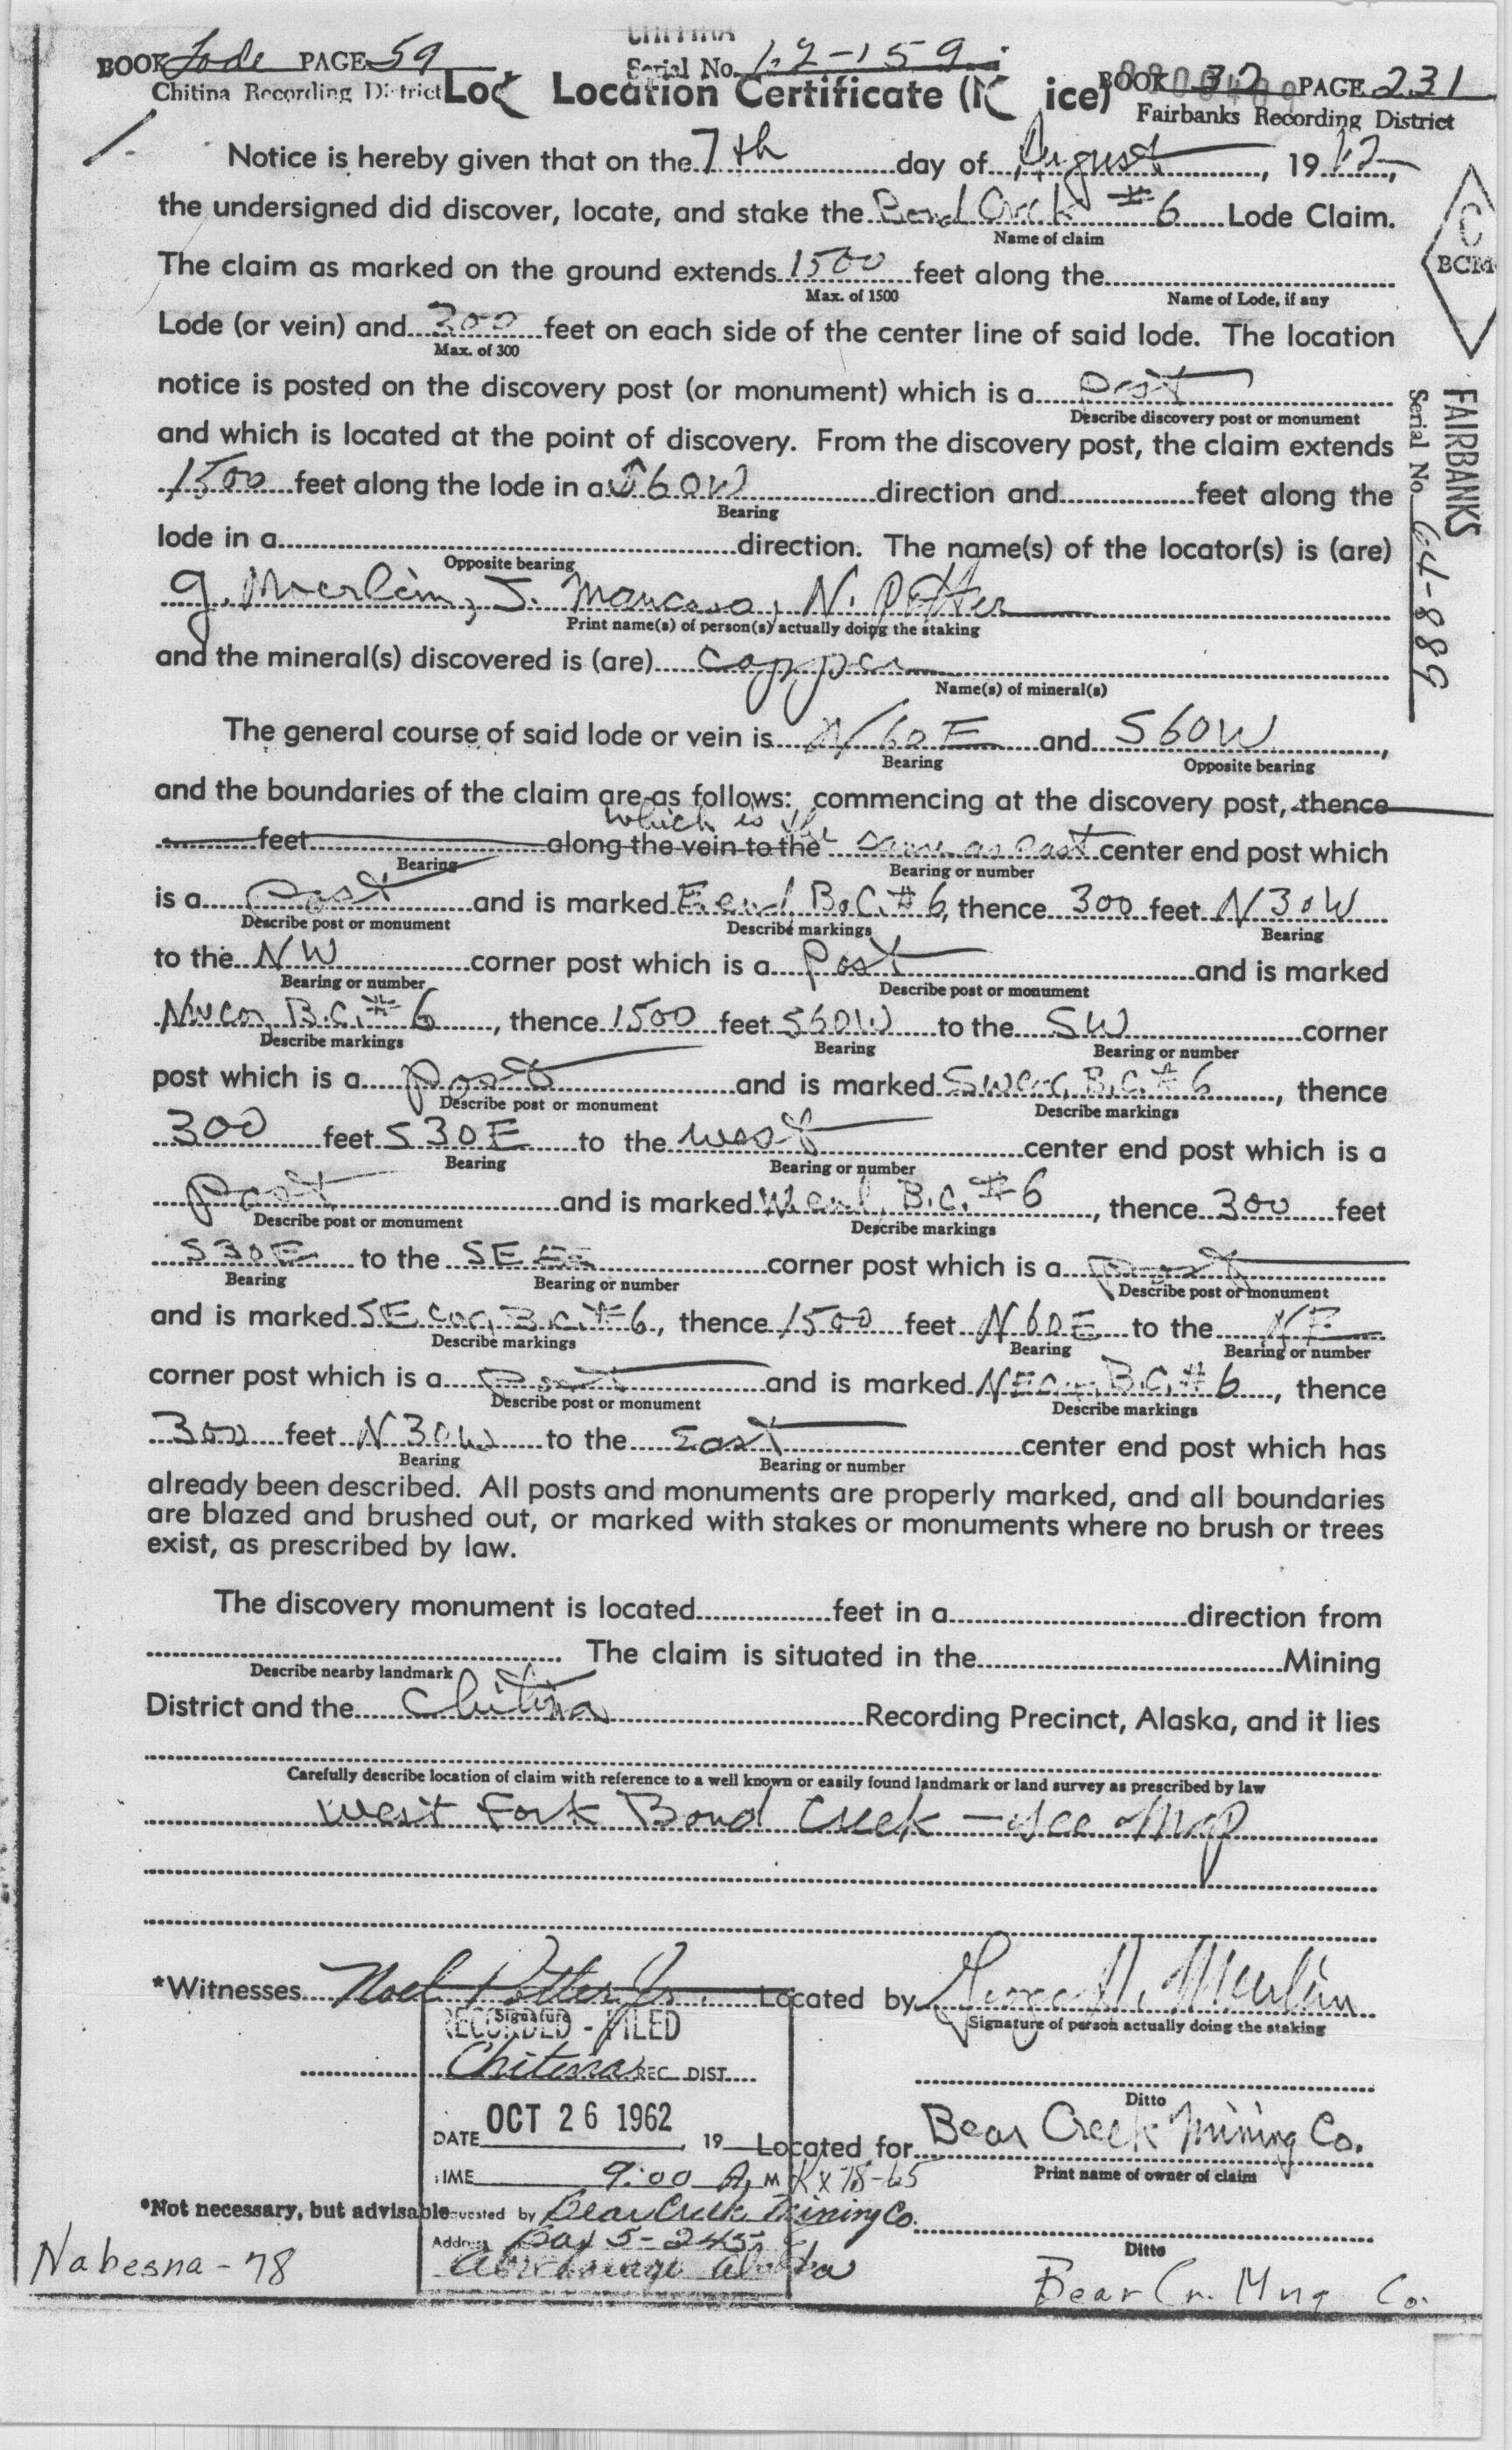 CHITINA
BOOK Lode PAGE 59 Serial No. 62-159
Chitina Recording District BOOK 32 PAGE 231
Location Certificate
Fairbanks Recording District
1.
Notice is hereby given that on the 7th day of August, 1962,
the undersigned did discover, locate, and stake the Bond Creek #6 Lode Claim.
Name of claim
The claim as marked on the ground extends 1500 feet along the
Max. of 1500 Name of Lode, if any
Lode (or vein) and 300 feet on each side of the center line of said lode. The location
Max. of 300
notice is posted on the discovery post (or monument) which is a post
Describe discovery post or monument
and which is located at the point of discovery. From the discovery post, the claim extends
1500 feet along the lode in a S60W direction and feet along the
Bearing
lode in a direction. The name(s) of the locator(s) is (are)
Opposite bearing
G. Moerlein, J. N. Potter
Print name(s) of person(s) actually doing the staking
and the mineral(s) discovered is (are) copper
Name(s) of mineral(s)
The general course of said lode or vein is N60E and S60W,
Bearing Opposite bearing
and the boundaries of the claim are as follows: commencing at the discovery post, thence
which is the
feet along the vein to the same as east center end post which
Bearing Bearing or number
is a Post and is marked E. end B.C. #6, thence 300 feet N30W
Describe post or monument Describe markings Bearing
to the NW corner post which is a Post and is marked
Bearing or number Describe post or monument
NW cor, B.C. #6, thence 1500 feet S60W to the SW corner
Describe markings Bearing Bearing or number
post which is a post and is marked SW cor, B.C. #6, thence
Describe post or monument Describe markings
300 feet S30E to the west center end post which is a
Bearing Bearing or number
Post and is marked W. end, B.C. #6, thence 300 feet
Describe post or monument Describe markings
S30E to the SE corner post which is a Post
Bearing Bearing or number Describe post or monument
and is marked SE cor, B.C. #6, thence 1500 feet N60E to the NE
Describe markings Bearing Bearing or number
corner post which is a Post and is marked NE cor, B.C. #6, thence
Describe post or monument Describe markings
300 feet N30W to the East center end post which has
Bearing Bearing or number
already been described. All posts and monuments are properly marked, and all boundaries
are blazed and brushed out, or marked with stakes or monuments where no brush or trees
exist, as prescribed by law.
The discovery monument is located feet in a direction from
. The claim is situated in the Mining
Describe nearby landmark
District and the Chitina Recording Precinct, Alaska, and it lies
Carefully describe location of claim with reference to a well known or easily found landmark or land survey as prescribed by law
West Fork Bond Creek - see Map
*Witnesses Noel Potter Jr. Located by George Moerlein
Signature Signature of person actually doing the staking
RECORDED - FILED
Chitina REC. DIST.
Ditto
DATE OCT 26 1962, 19 Located for Bear Creek Mining Co.
Print name of owner of claim
TIME 9:00 A. M Kx 78-65
*Not necessary, but advisable
Requested by Bear Creek Mining Co.
Address Box 5-245
Anchorage Alaska
Ditto
Nabesna - 78
Bear Cr. Mng Co.
C
BCM
FAIRBANKS
Serial No. 64-889